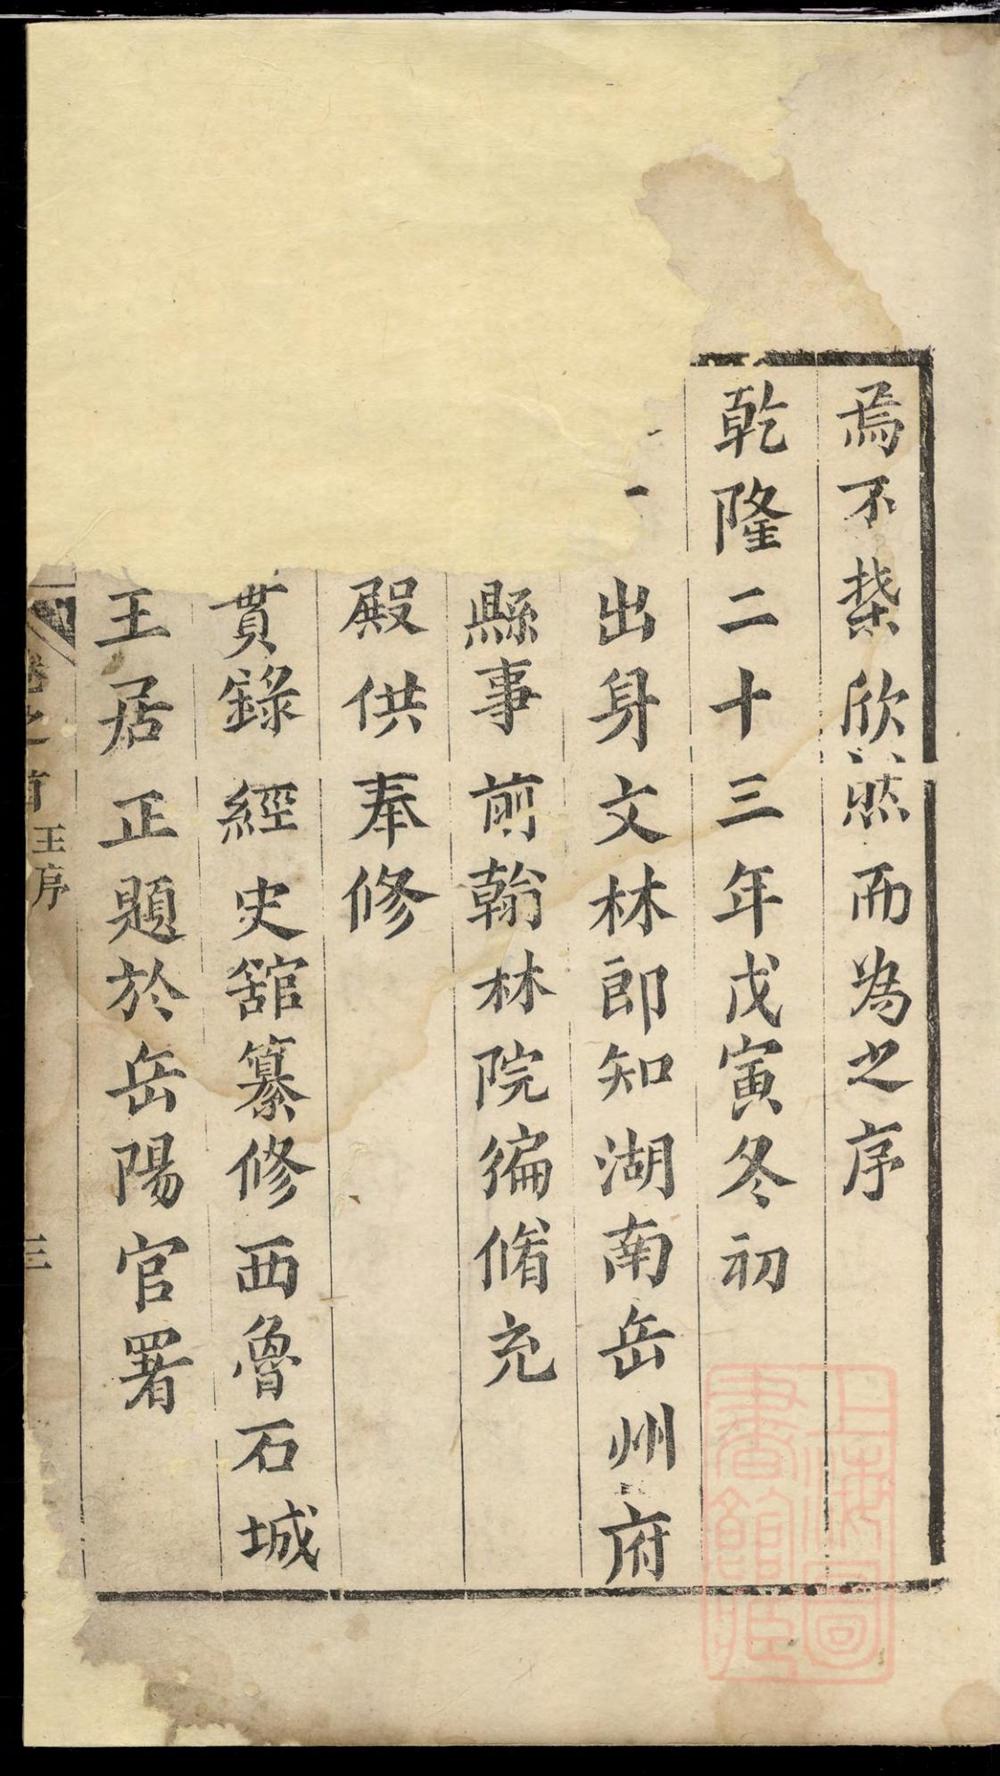 焉不禁欣然而為之序
乾隆二十三年戊寅冬初
出身文林郎知湖南岳州府
縣事前翰林院編脩充
殿供奉修
實錄經史館纂修西魯石城
王居正題於岳陽官署
卷之首 王序 三
上海圖書館藏